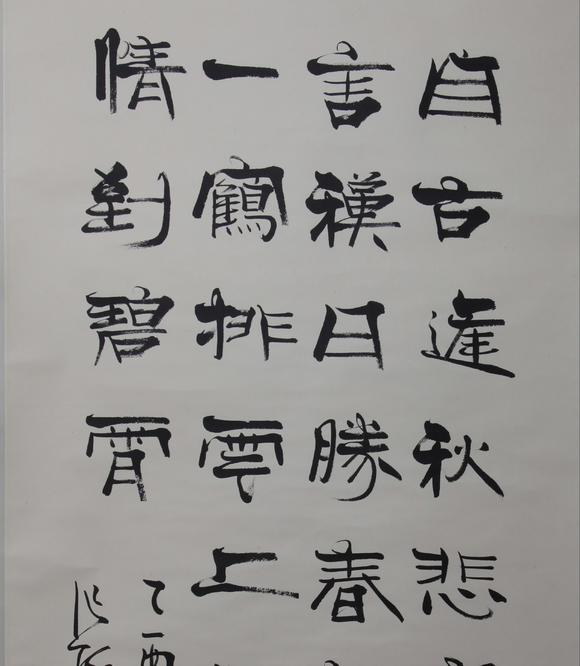 自古逢秋悲
言日勝春
一鶴排雲上
情到碧霄
乙酉